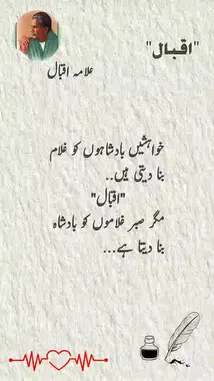 "اقبال"
علامہ اقبال
خواہشیں بادشاہوں کو غلام
بنا دیتی ہیں..
"اقبال"
مگر صبر غلاموں کو بادشاہ
بنا دیتا ہے...